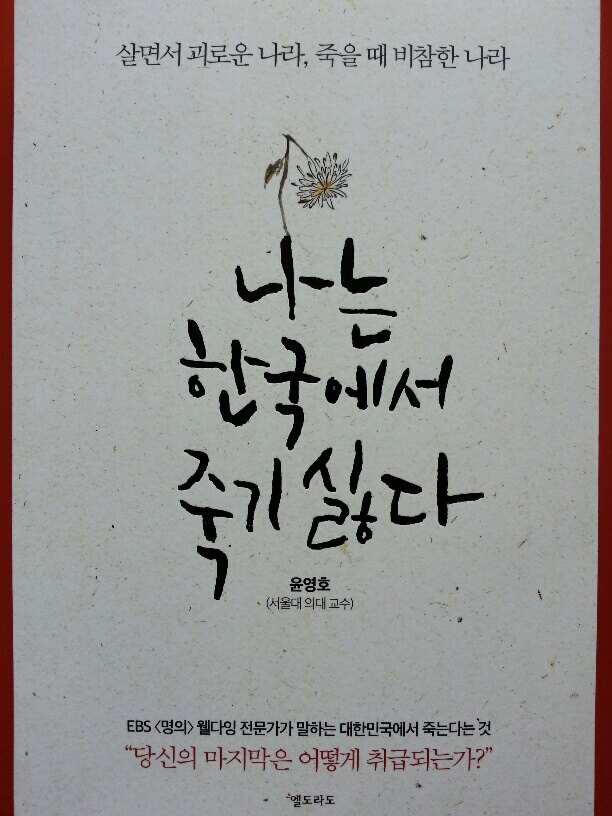 살면서 괴로운 나라, 죽을 때 비참한 나라
나는
한국에서
죽기 싫다
윤영호
(서울대 의대 교수)
EBS 〈명의〉 웰다잉 전문가가 말하는 대한민국에서 죽는다는 것
“당신의 마지막은 어떻게 취급되는가?”
엘도라도